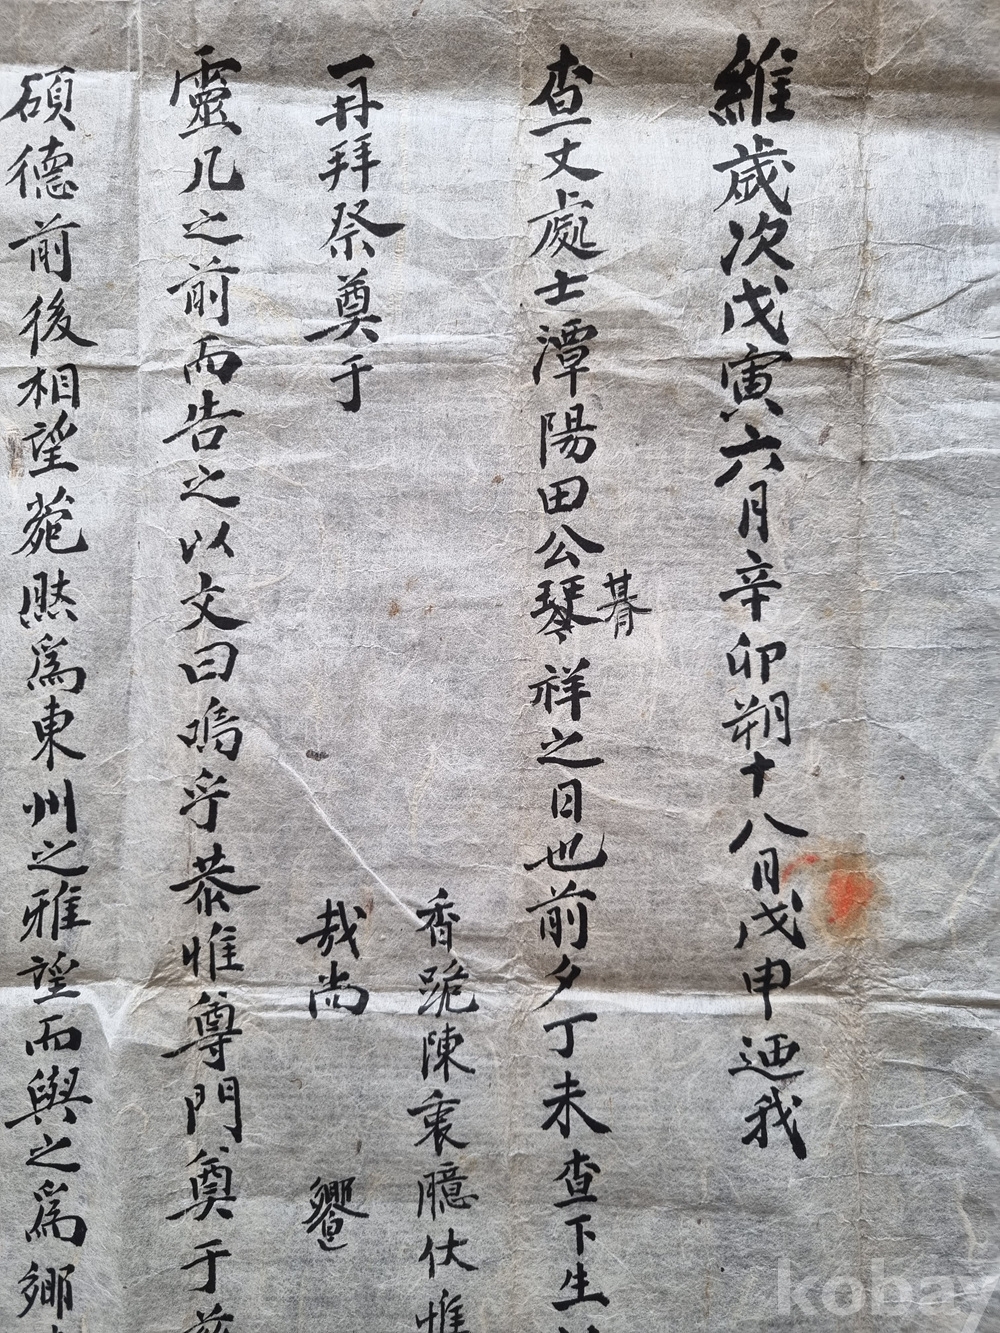 維歲次戊寅六月辛卯朔十八日戊申迺我
査丈處士潭陽田公琴朞祥之日也前夕丁未査下生
香跪陳衷臆伏惟
再拜祭奠于
哉尚
饗
靈几之前而告之以文曰嗚乎恭惟尊門奠于玆
碩德前後相望菀然爲東州之雅望而與之爲鄉
kobay